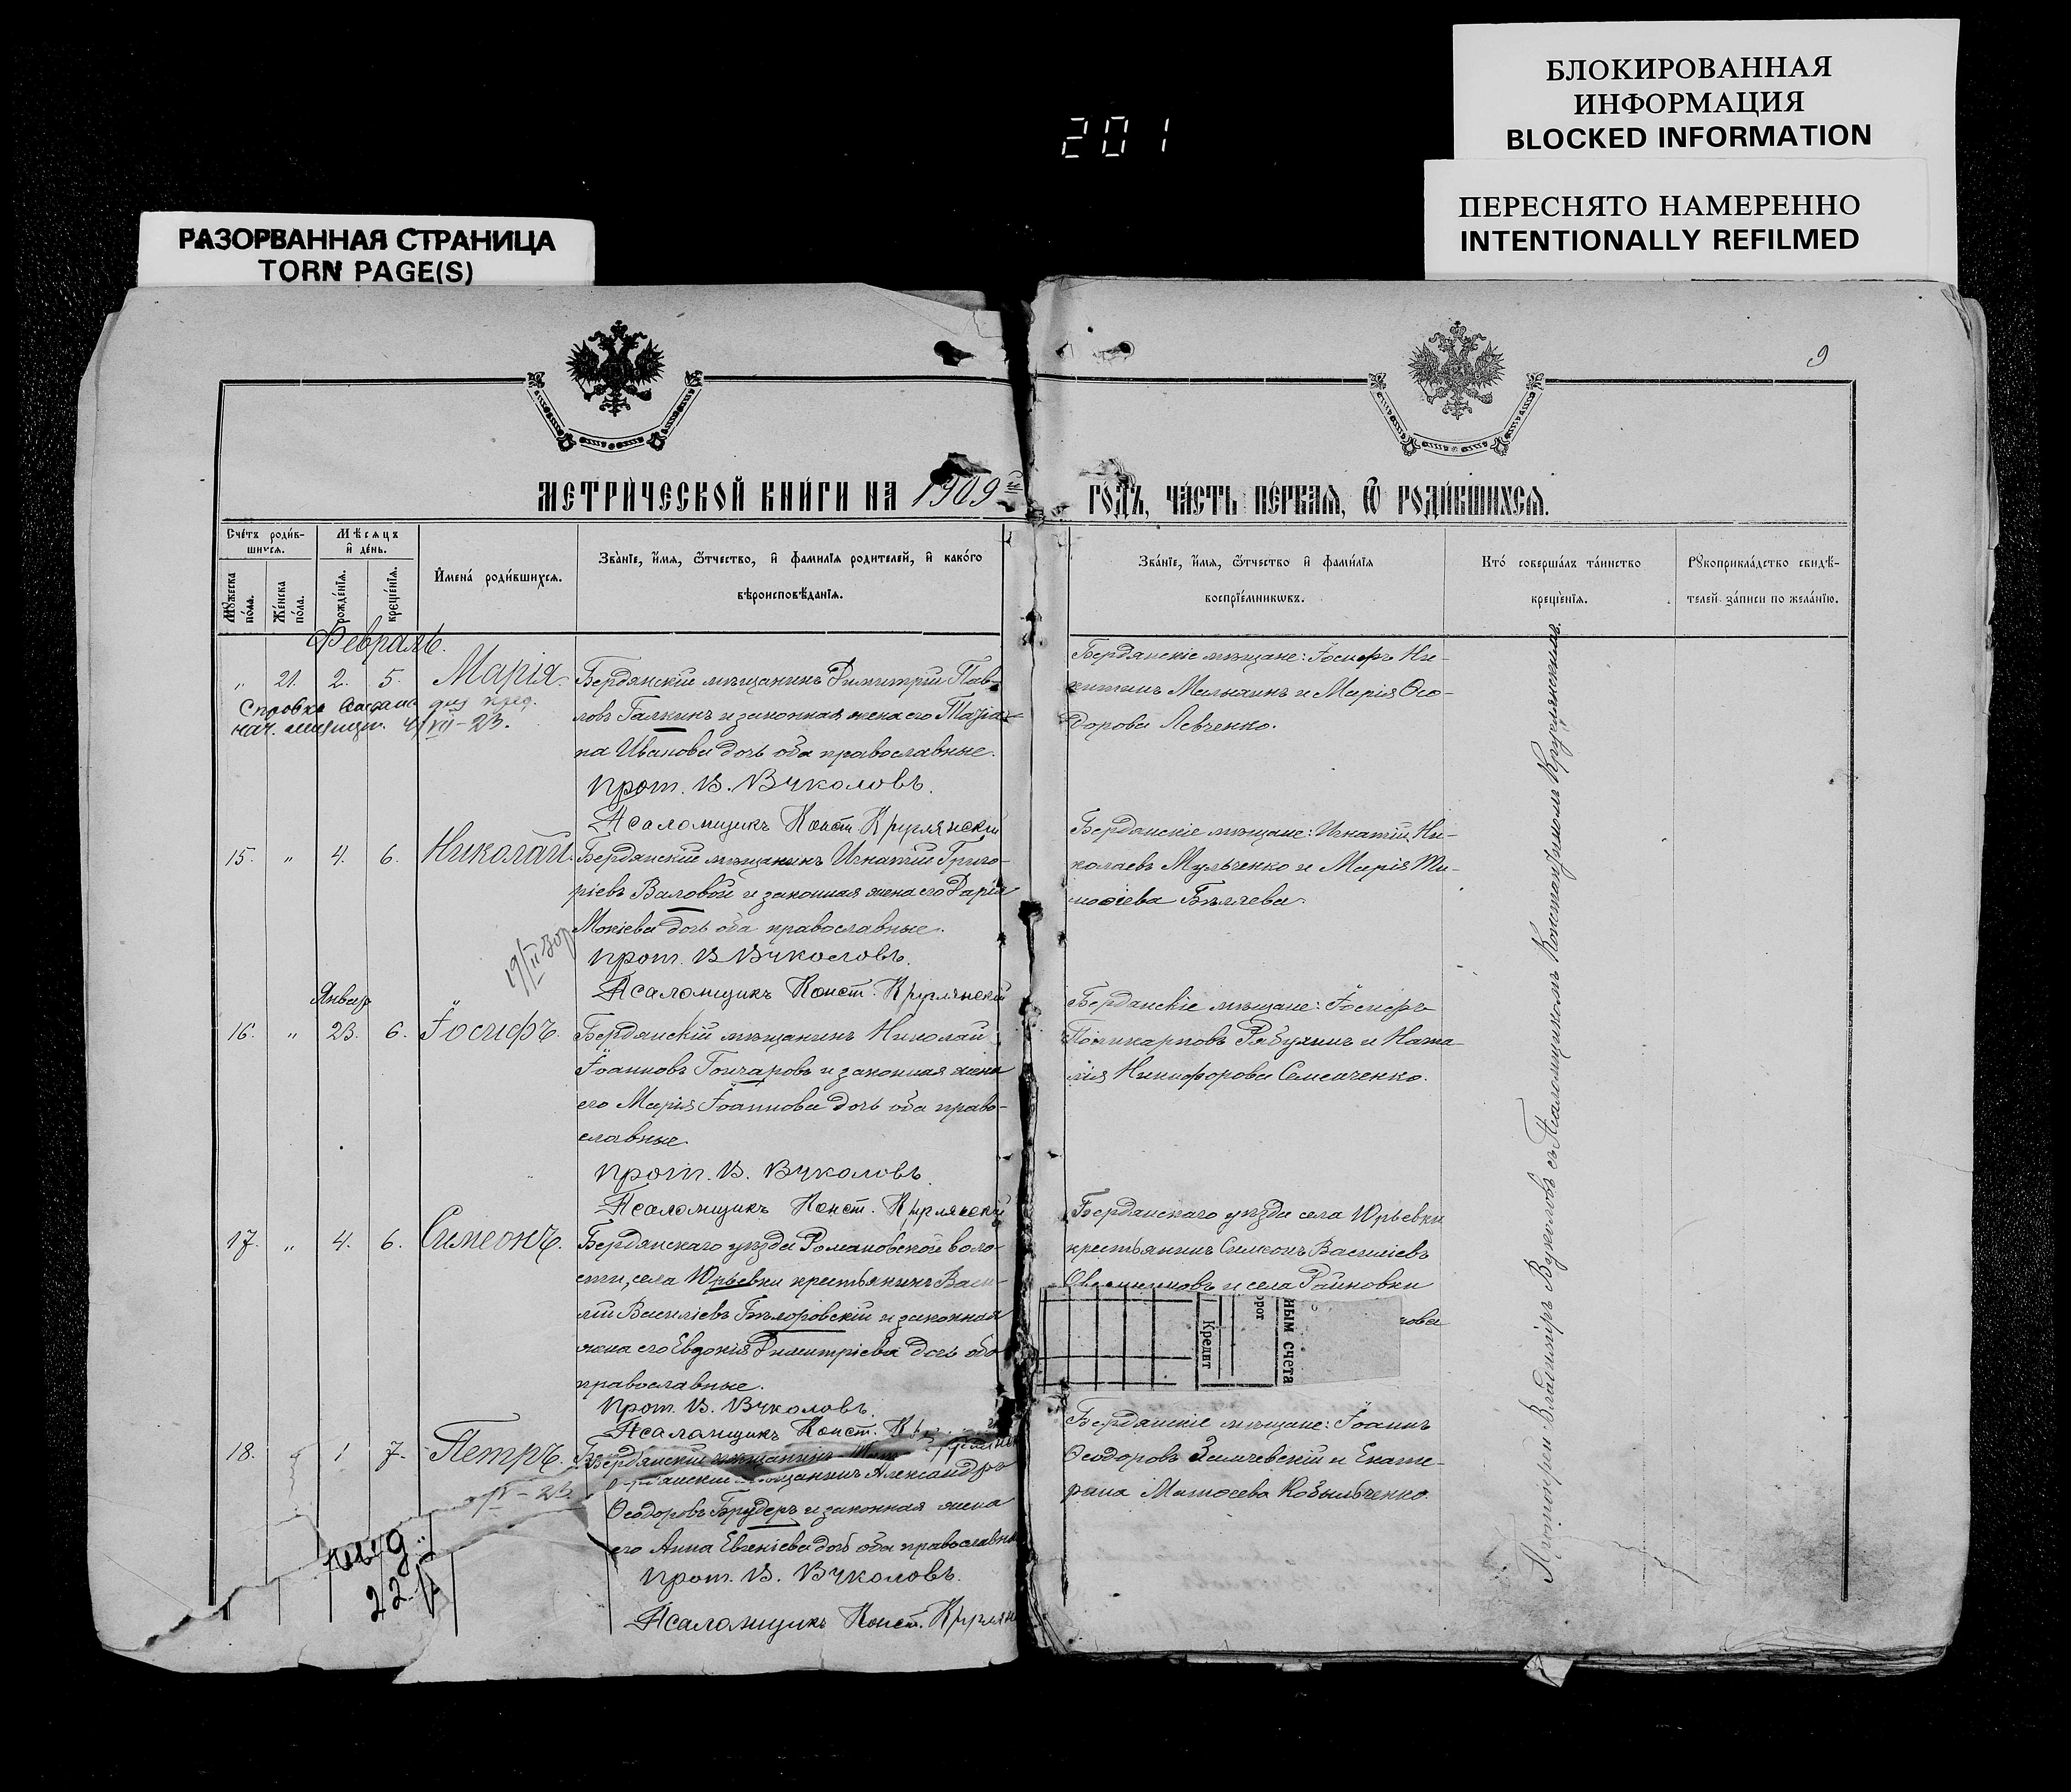 БЛОКИРОВАННАЯ
ИНФОРМАЦИЯ
BLOCKED INFORMATION
201
ПЕРЕСНЯТО НАМЕРЕННО
INTENTIONALLY REFILMED
РАЗОРВАННАЯ СТРАНИЦА
TORN PAGE(S)
9
МЕТРИЧЕСКОЙ КНИГИ НА 1909й
ГОДЪ, ЧАСТЬ ПЕРВАЯ, Ѿ РОДИВШИХСЯ.
Счетъ родив-
шихся.
Мѣсяцъ
и день.
Мужеска
пола.
Женска
пола.
рожденія.
крещенія.
Имена родившихся.
Званіе, имя, ѿтчество, и фамилія родителей, и какого
вѣроисповѣданія.
Званіе, имя, ѿтчество и фамилія
воспріемниковъ.
Кто совершалъ таинство
крещенія.
Рукоприкладство свидѣ-
телей записи по желанію.
Февраль.
„ 21. 2. 5. Марія.
Бердянскій мѣщанинъ Димитрій Пав-
ловъ Галкинъ и законная жена его Татіа-
на Иванова дочь оба православные.
Прот. В. Вуколовъ.
Псаломщикъ Конст. Круглянскій
Справка
VII-23.
Бердянскіе мѣщане: Іосифъ Ни-
китинъ Малыхинъ и Марія Ѳео-
дорова Левченко.
15. „ 4. 6. Николай.
Бердянскій мѣщанинъ Игнатій Григо-
ріевъ Валовой и законная жена его Дарія
Мокіева дочь оба православные.
Прот. В. Вуколовъ.
Псаломщикъ Конст. Круглянскій
19/II
Бердянскіе мѣщане: Игнатій Ни-
колаевъ Мульченко и Марія Ти-
моѳіева Бѣличева.
Январ
16. „ 23. 6. Іосифъ.
Бердянскій мѣщанинъ Николай
Іоанновъ Гончаровъ и законная жена
его Марія Іоаннова дочь оба право-
славные.
Прот. В. Вуколовъ.
Псаломщикъ Конст. Круглянскій
Бердянскіе мѣщане: Іосифъ
Поликарповъ Рябухинъ и Ната-
лія Никифорова Семенченко.
17. „ 4. 6. Симеонъ.
Бердянскаго уѣзда Романовской воло-
сти, села Юрьевки крестьянинъ Васи-
лій Василіевъ Бѣлоровскій и законная
жена его Евдокія Димитріева дочь оба
православные.
Прот. В. Вуколовъ.
Псаломщикъ Конст.
Бердянскаго уѣзда села Юрьевки
крестьянинъ Симеонъ Василіевъ
и села Райновки
ова
Кредит
орот
ным счета
18. „ 1 7. Петръ.
Бердянскій мѣщанинъ
мѣщанинъ Александръ
Ѳеодоровъ Брудеръ и законная жена
его Анна Евгеніева дочь оба православны
Прот. В. Вуколовъ.
Псаломщикъ Конст. Круглян
22
Бердянскіе мѣщане: Іоаннъ
Ѳеодоровъ Зимчевскій и Екате-
рина Матѳеева Кобыльченко.
Протоіерей Владиміръ Вуколовъ съ Псаломщикомъ Константиномъ Круглянскимъ.